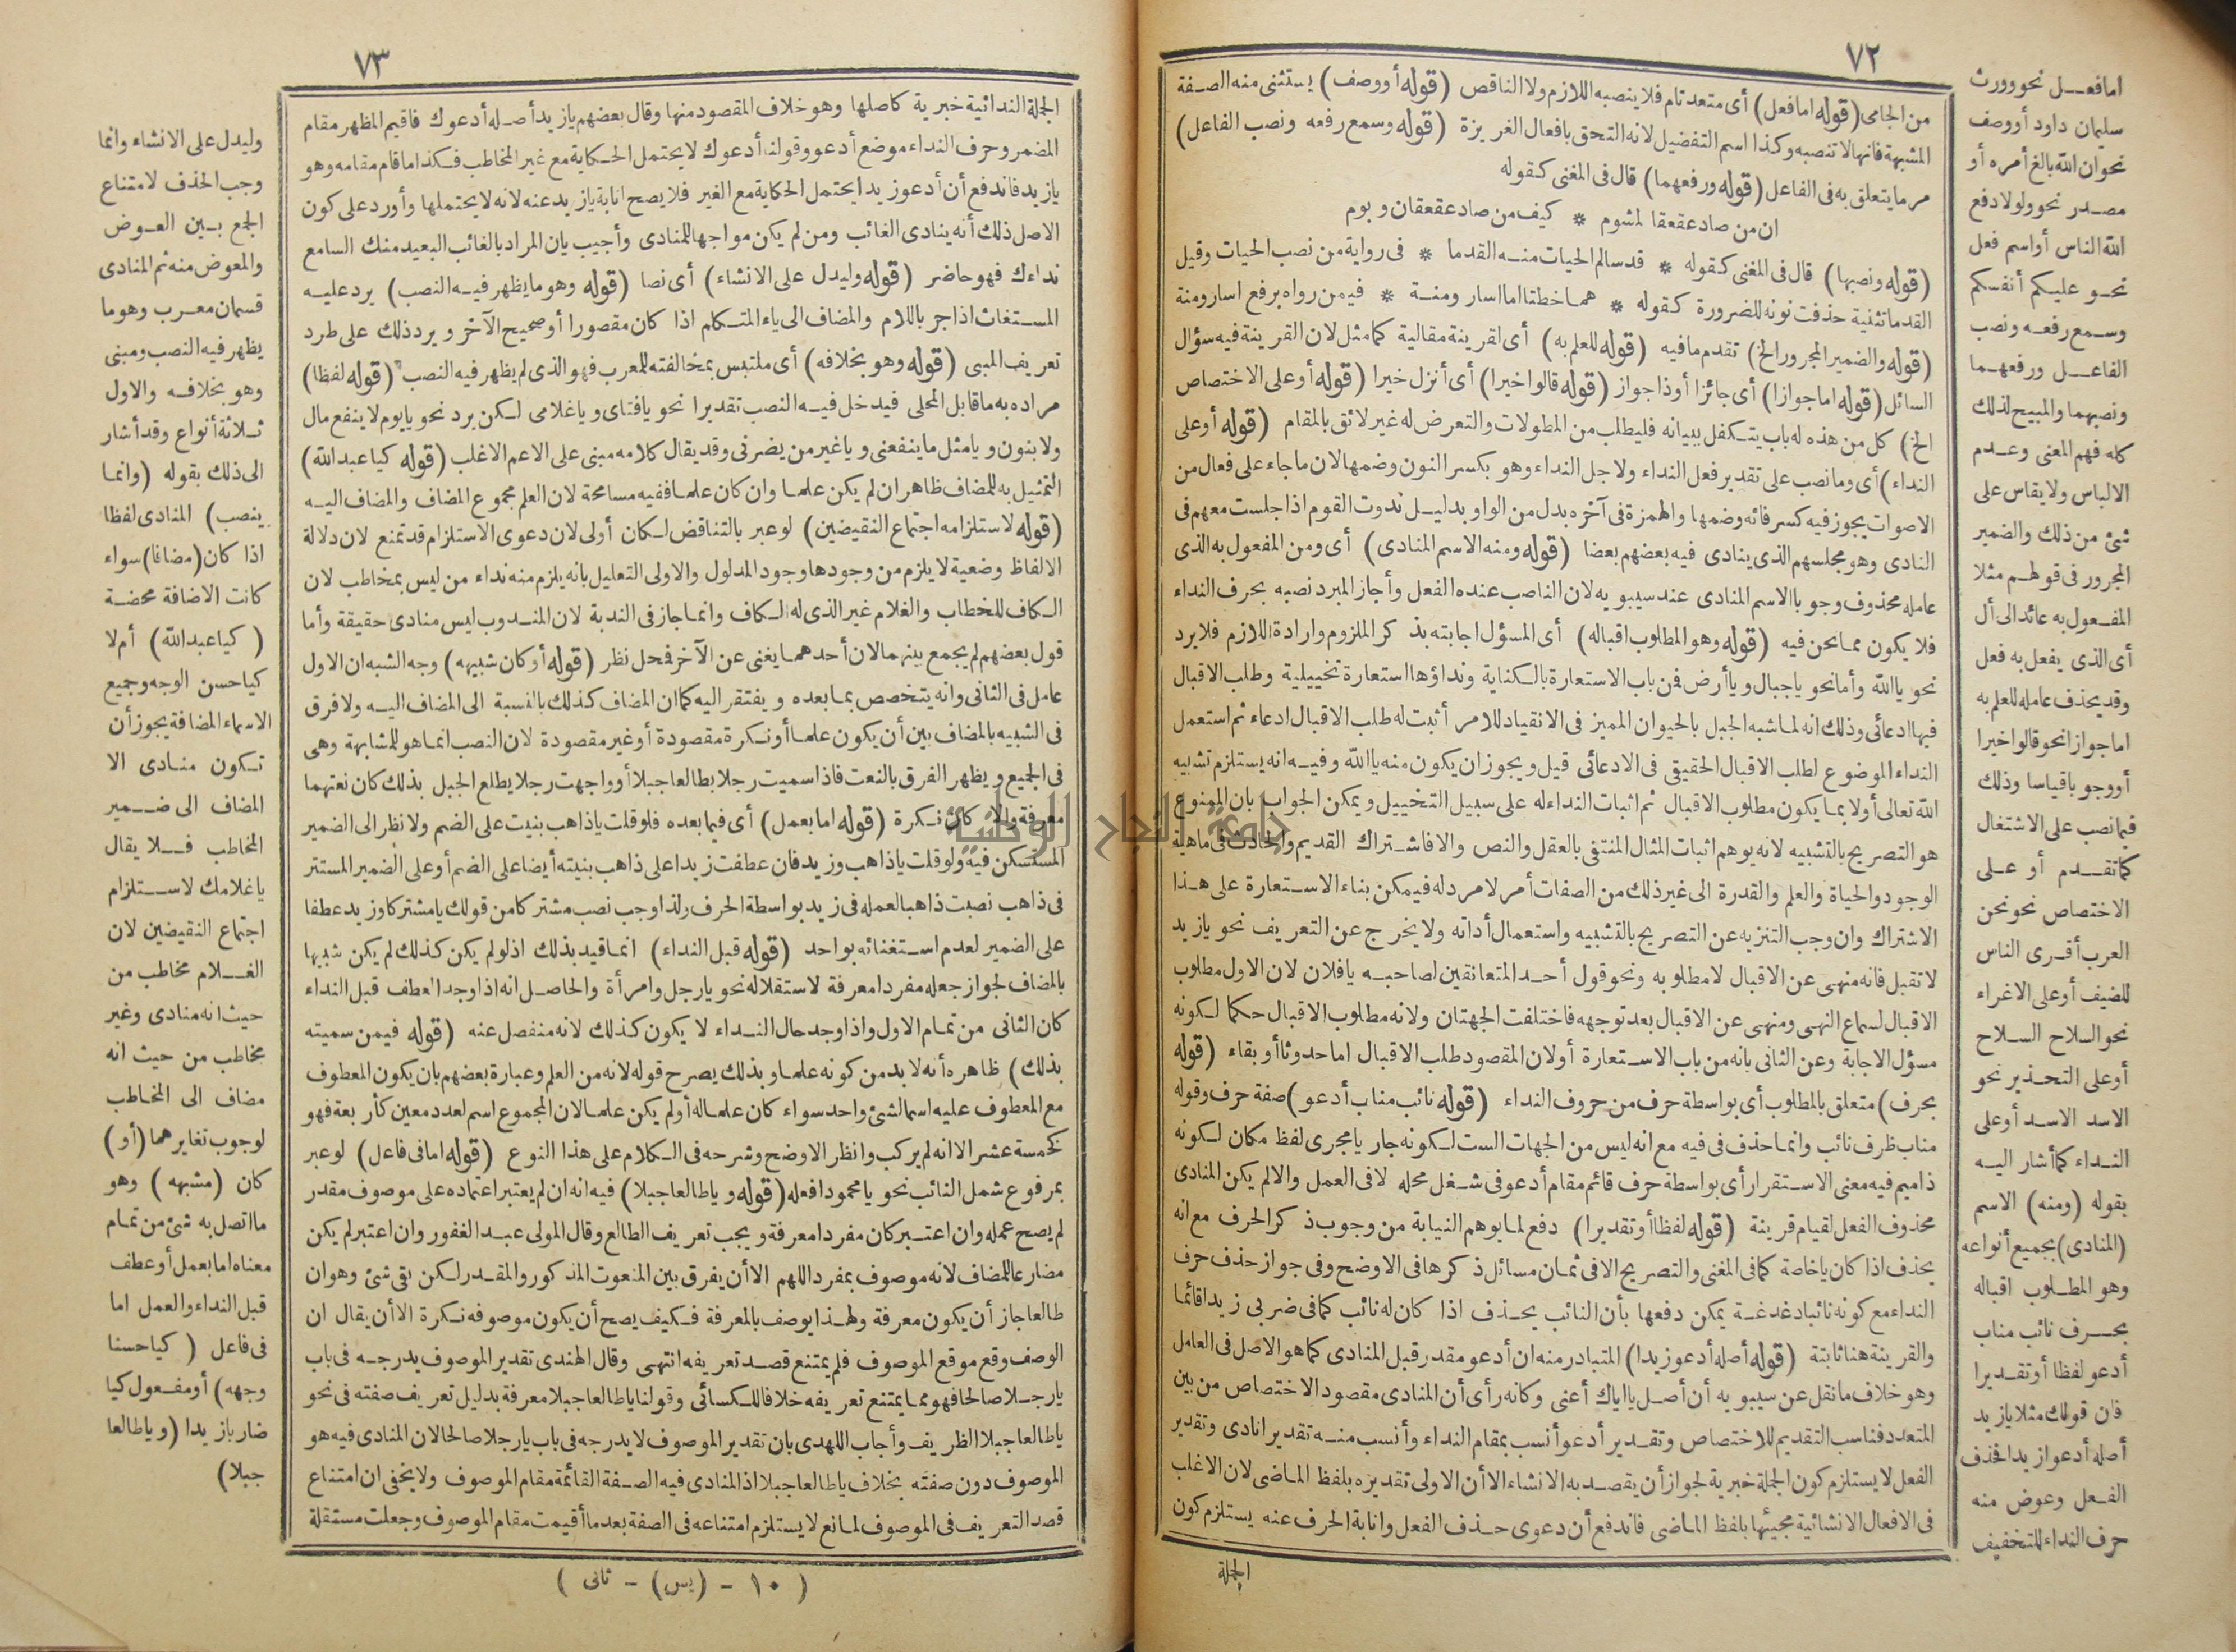 ٧٢
من الجامى (قوله اما فعل) أى متعد تام فلا ينصبه اللازم ولا الناقص (قوله أو وصف) يستثنى منه الصفة
المشبهة فانها لا تنصبه وكذا اسم التفضيل لانه التحق بافعال الغريزة (قوله وسمع رفعه ونصب الفاعل)
مر ما يتعلق به فى الفاعل (قوله ورفعهما) قال فى المغنى كقوله
ان من صاد عقعقا لمشوم * كيف من صاد عقعقان وبوم
(قوله ونصبها) قال فى المغنى كقوله * قد سالم الحيات منه القدما * فى رواية من نصب الحيات وقيل
القدما تثنية حذفت نونه للضرورة كقوله * هما خطتا اما اسار ومنة * فيمن رواه برفع اسار ومنة
(قوله والضمير المجرور الخ) تقدم ما فيه (قوله للعلم به) أى لقرينة مقالية كما مثل لان القرينة فيه سؤال
السائل (قوله اما جوازا) أى جائزا أو ذا جواز (قوله قالوا خيرا) أى أنزل خيرا (قوله أو على الاختصاص
الخ) كل من هذه له باب يتكفل ببيانه فليطلب من المطولات والتعرض له غير لائق بالمقام (قوله أو على
النداء) أى وما نصب على تقدير فعل النداء ولاجل النداء وهو بكسر النون وضمها لان ما جاء على فعال من
الاصوات يجوز فيه كسر فائه وضمها والهمزة فى آخره بدل من الواو بدليل ندوت القوم اذا جلست معهم فى
النادى وهو مجلسهم الذى ينادى فيه بعضهم بعضا (قوله ومنه الاسم المنادى) أى ومن المفعول به الذى
عامله محذوف وجوبا الاسم المنادى عند سيبويه لان الناصب عنده الفعل وأجاز المبرد نصبه بحرف النداء
فلا يكون مما نحن فيه (قوله وهو المطلوب اقباله) أى المسؤل اجابته بذكر الملزوم وارادة اللازم فلا يرد
نحو يا الله وأما نحو يا جبال ويا أرض فمن باب الاستعارة بالكناية ونداؤها استعارة تخييلية وطلب الاقبال
فيها ادعائى وذلك انه لما شبه الجبل بالحيوان المميز فى الانقياد للامر أثبت له طلب الاقبال ادعاء ثم استعمل
النداء الموضوع لطلب الاقبال الحقيقى فى الادعائى قيل ويجوز ان يكون منه يا الله وفيه انه يستلزم تشبيه
الله تعالى أولا بما يكون مطلوب الاقبال ثم اثبات النداء له على سبيل التخييل ويمكن الجواب بان الممنوع
هو التصريح بالتشبيه لانه يوهم اثبات المثال المنتفى بالعقل والنص والا فاشتراك القديم والحادث فى ماهية
الوجود والحياة والعلم والقدرة الى غير ذلك من الصفات أمر لا مرد له فيمكن بناء الاستعارة على هذا
الاشتراك وان وجب التنزيه عن التصريح بالتشبيه واستعمال أداته ولا يخرج عن التعريف نحو يا زيد
لا تقبل فانه منهى عن الاقبال لا مطلوبه ونحو قول أحد المتعانقين لصاحبه يا فلان لان الاول مطلوب
الاقبال لسماع النهى ومنهى عن الاقبال بعد توجهه فاختلفت الجهتان ولانه مطلوب الاقبال حكما لكونه
مسؤل الاجابة وعن الثانى بانه من باب الاستعارة أو لان المقصود طلب الاقبال اما حدوثا أو بقاء (قوله
بحرف) متعلق بالمطلوب أى بواسطة حرف من حروف النداء (قوله نائب مناب أدعو) صفة حرف وقوله
مناب ظرف نائب وانما حذف فى فيه مع انه ليس من الجهات الست لكونه جاريا مجرى لفظ مكان لكونه
ذا ميم فيه معنى الاستقرار أى بواسطة حرف قائم مقام أدعو فى شغل محله لا فى العمل والا لم يكن المنادى
محذوف الفعل لقيام قرينة (قوله لفظا أو تقديرا) دفع لما يوهم النيابة من وجوب ذكر الحرف مع انه
يحذف اذا كان يا خاصة كما فى المغنى والتصريح الا فى ثمان مسائل ذكرها فى الاوضح وفى جواز حذف حرف
النداء مع كونه نائبا دغدغة يمكن دفعها بأن النائب يحذف اذا كان له نائب كما فى ضربى زيدا قائما
والقرينة هنا ثابتة (قوله أصله أدعو زيدا) المتبادر منه ان أدعو مقدر قبل المنادى كما هو الاصل فى العامل
وهو خلاف ما نقل عن سيبويه أن أصل يا اياك أعنى وكانه رأى أن المنادى مقصود الاختصاص من بين
المتعدد فناسب التقديم للاختصاص وتقدير أدعو أنسب بمقام النداء وأنسب منه تقدير انادى وتقدير
الفعل لا يستلزم كون الجملة خبرية لجواز أن يقصد به الانشاء الا أن الاولى تقديره بلفظ الماضى لان الاغلب
فى الافعال الانشائية مجيئها بلفظ الماضى فاندفع أن دعوى حذف الفعل وانابة الحرف عنه يستلزم كون
الجملة
اما فعل نحو وورث
سليمان داود أو وصف
نحو ان الله بالغ أمره أو
مصدر نحو ولولا دفع
الله الناس أو اسم فعل
نحو عليكم أنفسكم
وسمع رفعه ونصب
الفاعل ورفعهما
ونصبهما والمبيح لذلك
كله فهم المعنى وعدم
الالباس ولا يقاس على
شئ من ذلك والضمير
المجرور فى قولهم مثلا
المفعول به عائد الى أل
أى الذى يفعل به فعل
وقد يحذف عامله للعلم به
اما جوازا نحو قالوا خيرا
أو وجوبا قياسا وذلك
فيما نصب على الاشتغال
كما تقدم أو على
الاختصاص نحو نحن
العرب أقرى الناس
للضيف أو على الاغراء
نحو السلاح السلاح
أو على التحذير نحو
الاسد الاسد أو على
النداء كما أشار اليه
بقوله (ومنه) الاسم
(المنادى) بجميع أنواعه
وهو المطلوب اقباله
بحرف نائب مناب
أدعو لفظا أو تقديرا
فان قولك مثلا يا زيد
أصله أدعو زيدا فحذف
الفعل وعوض منه
حرف النداء للتخفيف
٧٣
الجملة الندائية خبرية كاصلها وهو خلاف المقصود منها وقال بعضهم يا زيد أصله أدعوك فاقيم المظهر مقام
المضمر وحرف النداء موضع أدعو وقولنا أدعوك لا يحتمل الحكاية مع غير المخاطب فكذا ما قام مقامه وهو
يا زيد فاندفع أن أدعو زيدا يحتمل الحكاية مع الغير فلا يصح انابة يا زيد عنه لانه لا يحتملها وأورد على كون
الاصل ذلك أنه ينادى الغائب ومن لم يكن مواجها للمنادى وأجيب بان المراد بالغائب البعيد منك السامع
نداءك فهو حاضر (قوله وليدل على الانشاء) أى نصا (قوله وهو ما يظهر فيه النصب) يرد عليه
المستغاث اذا جر باللام والمضاف الى ياء المتكلم اذا كان مقصورا أو صحيح الآخر ويرد ذلك على طرد
تعريف المبنى (قوله وهو بخلافه) أى ملتبس بمخالفته للمعرب فهو الذى لم يظهر فيه النصب (قوله لفظا)
مراده به ما قابل المحلى فيدخل فيه النصب تقديرا نحو يا فتاى ويا غلامى لكن يرد نحو يا يوم لا ينفع مال
ولا بنون ويا مثل ما ينفعنى ويا غير من يضرنى وقد يقال كلامه مبنى على الاعم الاغلب (قوله كيا عبد الله)
التمثيل به للمضاف ظاهر ان لم يكن علما وان كان علما ففيه مسامحة لان العلم مجموع المضاف والمضاف اليه
(قوله لاستلزامه اجتماع النقيضين) لو عبر بالتناقض لكان أولى لان دعوى الاستلزام قد تمنع لان دلالة
الالفاظ وضعية لا يلزم من وجودها وجود المدلول والاولى التعليل بانه يلزم منه نداء من ليس بمخاطب لان
الكاف للخطاب والغلام غير الذى له الكاف وانما جاز فى الندبة لان المندوب ليس منادى حقيقة وأما
قول بعضهم لم يجمع بينهما لان أحدهما يغنى عن الآخر فمحل نظر (قوله أو كان شبيهه) وجه الشبه ان الاول
عامل فى الثانى وانه يتخصص بما بعده ويفتقر اليه كما ان المضاف كذلك بالنسبة الى المضاف اليه ولا فرق
فى الشبيه بالمضاف بين أن يكون علما أو نكرة مقصودة أو غير مقصودة لان النصب انما هو للمشابهة وهى
فى الجميع ويظهر الفرق بالنعت فاذا سميت رجلا بطالعا جبلا أو واجهت رجلا يطلع الجبل بذلك كان نعتهما
معرفة والا كان نكرة (قوله اما بعمل) أى فيما بعده فلو قلت يا ذاهب بنيت على الضم ولا نظر الى الضمير
المستكن فيه ولو قلت يا ذاهب وزيد فان عطفت زيدا على ذاهب بنيته أيضا على الضم أو على الضمير المستتر
فى ذاهب نصبت ذاهبا لعمله فى زيد بواسطة الحرف ولذا وجب نصب مشتركا من قولك يا مشتركا وزيد عطفا
على الضمير لعدم استغنائه بواحد (قوله قبل النداء) انما قيد بذلك اذ لو لم يكن كذلك لم يكن شبيها
بالمضاف لجواز جعله مفردا معرفة لاستقلاله نحو يا رجل وامرأة والحاصل انه اذا وجد العطف قبل النداء
كان الثانى من تمام الاول واذا وجد حال النداء لا يكون كذلك لانه منفصل عنه (قوله فيمن سميته
بذلك) ظاهره أنه لا بد من كونه علما وبذلك يصرح قوله لانه من العلم وعبارة بعضهم بان يكون المعطوف
مع المعطوف عليه اسما لشئ واحد سواء كان علما له أو لم يكن علما لان المجموع اسم لعدد معين كأربعة فهو
كخمسة عشر الا انه لم يركب وانظر الاوضح وشرحه فى الكلام على هذا النوع (قوله اما فى فاعل) لو عبر
بمرفوع شمل النائب نحو يا محمودا فعله (قوله ويا طالعا جبلا) فيه انه ان لم يعتبر اعتماده على موصوف مقدر
لم يصح عمله وان اعتبر كان مفردا معرفة ويجب تعريف الطالع وقال المولى عبد الغفور وان اعتبر لم يكن
مضارعا للمضاف لانه موصوف بمفرد اللهم الا أن يفرق بين المنعوت المذكور والمقدر لكن بقى شئ وهو ان
طالعا جاز أن يكون معرفة ولهذا يوصف بالمعرفة فكيف يصح أن يكون موصوفه نكرة الا أن يقال ان
الوصف وقع موقع الموصوف فلم يمتنع قصد تعريفه انتهى وقال الهندى تقدير الموصوف يدرجه فى باب
يا رجلا صالحا فهو مما يمتنع تعريفه خلافا للكسائى وقولنا يا طالعا جبلا معرفة بدليل تعريف صفته فى نحو
يا طالعا جبلا الظريف وأجاب اللهدى بان تقدير الموصوف لا يدرجه فى باب يا رجلا صالحا لان المنادى فيه هو
الموصوف دون صفته بخلاف يا طالعا جبلا اذ المنادى فيه الصفة القائمة مقام الموصوف ولا يخفى ان امتناع
قصد التعريف فى الموصوف لمانع لا يستلزم امتناعه فى الصفة بعد ما أقيمت مقام الموصوف وجعلت مستقلة
( ١٠ - (يس) - ثانى )
وليدل على الانشاء وانما
وجب الحذف لامتناع
الجمع بين العوض
والمعوض منه ثم المنادى
قسمان معرب وهو ما
يظهر فيه النصب ومبنى
وهو بخلافه والاول
ثلاثة أنواع وقد أشار
الى ذلك بقوله (وانما
ينصب) المنادى لفظا
اذا كان (مضافا) سواء
كانت الاضافة محضة
(كيا عبد الله) أم لا
كيا حسن الوجه وجميع
الاسماء المضافة يجوز أن
تكون منادى الا
المضاف الى ضمير
المخاطب فلا يقال
يا غلامك لاستلزام
اجتماع النقيضين لان
الغلام مخاطب من
حيث انه منادى وغير
مخاطب من حيث انه
مضاف الى المخاطب
لوجوب تغايرهما (أو)
كان (مشبهه) وهو
ما اتصل به شئ من تمام
معناه اما بعمل أو عطف
قبل النداء والعمل اما
فى فاعل (كيا حسنا
وجهه) أو مفعول كيا
ضاربا زيدا (ويا طالعا
جبلا)
جامعة النجاح الوطنية